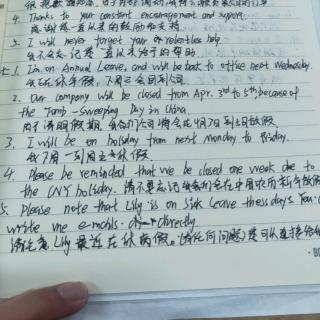 4. Thanks to your constant encouragement and support.
感谢您一直以来的鼓励和支持
5. I will never forget your relentless help
我不会忘记您一直以来给予的帮助
七 1. I'm on Annual Leave, and will be back to office next Wednesday.
我正在休年假，下周三会回到公司
2. Our company will be closed from Apr. 3rd to 5th because of
the Tomb-Sweeping Day in China
由于清明假期，我们公司将会在4月3日到5日放假
3. I will be on holiday from next Monday to Friday.
我下周一到周五会休假
4 Please be reminded that we be closed one week due to
the CNY holiday.
5. Please note that Lily is on sick leave these days. You
write me e-mails directly.
请注意 Lily 最近在休病假。